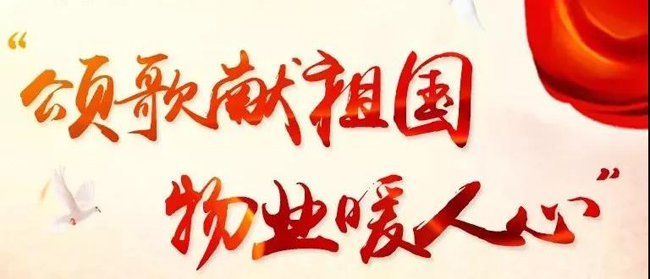 “颂歌献祖国
物业暖人心”